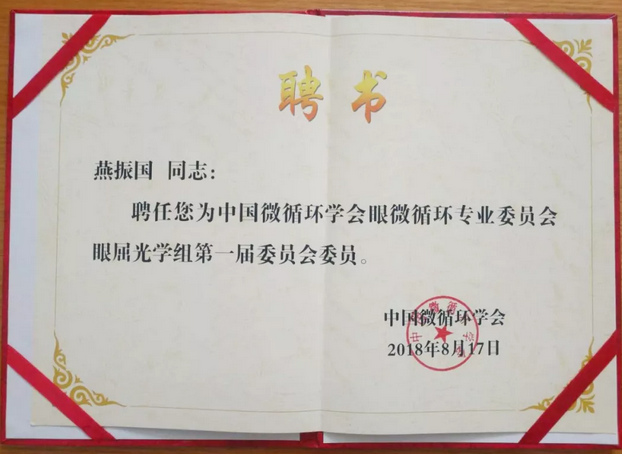 聘书
燕振国 同志：
聘任您为中国微循环学会眼微循环专业委员会
眼屈光学组第一届委员会委员。
中国微循环学会
2018年8月17日